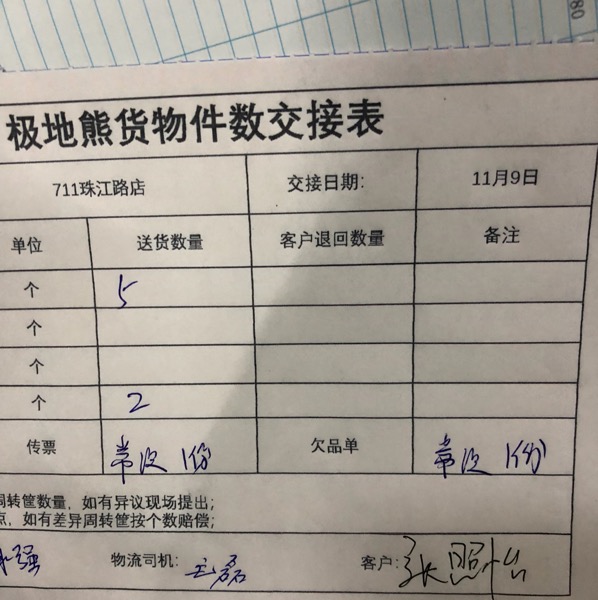 80
极地熊货物件数交接表
711珠江路店 交接日期: 11月9日
单位 送货数量 客户退回数量 备注
个 5
个
个
个 2
传票 常温 1份 欠品单 常温 1份
周转筐数量，如有异议现场提出;
点，如有差异周转筐按个数赔偿;
强 物流司机: 王磊 客户: 张照怡